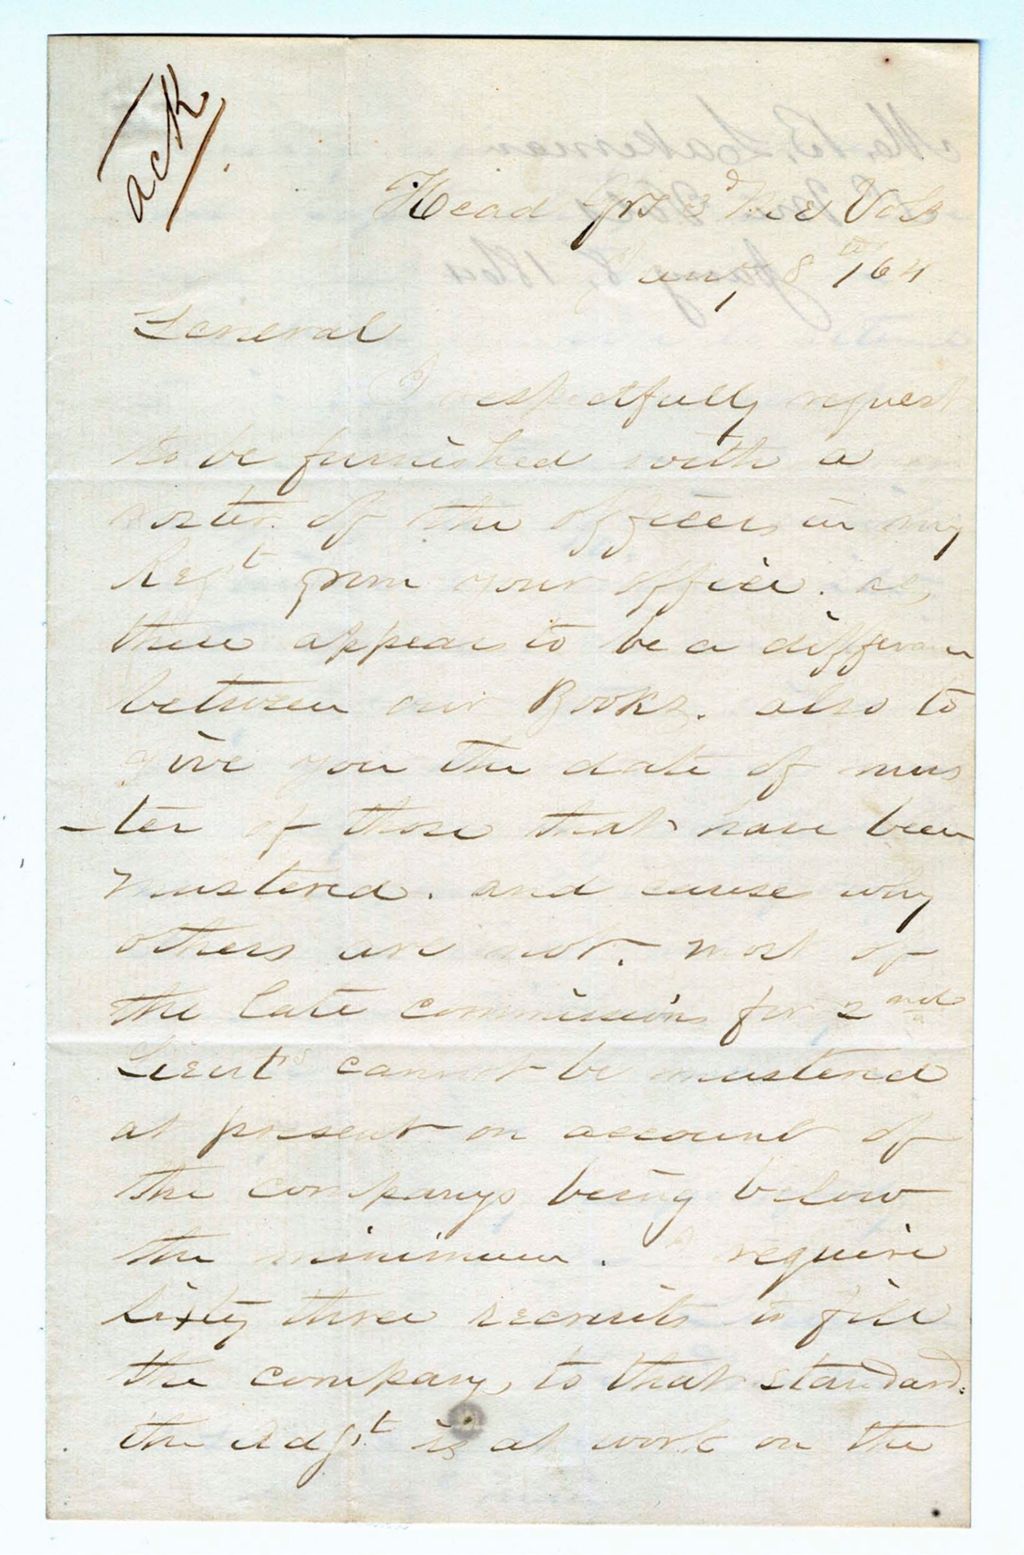 ack
Head Qrs 3d Me Vols
Jany 8th /64
General
I respectfully request
to be furnished with a
roster of the officers in my
Regt from your office. as,
there appears to be a differance
between our Books. also to
give you the date of mus
-ter of those that have been
mustered. and cause why
others are not. most of
the late commissions for 2nd
Lieuts cannot be mustered
at present on account of
the companys being below
the minimum. I require
sixty three recruits to fill
the company, to that standard.
the Adjt is at work on the
M. B. Lakeman
Jany 8, 1864